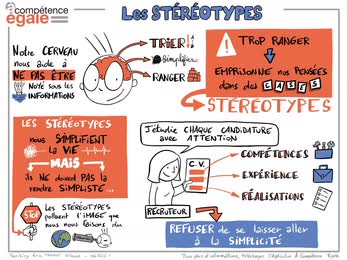 à compétence
égale
Les STÉRÉOTYPES
Notre CERVEAU
nous aide à
NE PAS ÊTRE
NOYÉ SOUS les
INFORMATIONS
TRIER
Simplifier
RANGER
! TROP RANGER
EMPRISONNE nos PENSÉES
dans des CASES
STÉRÉOTYPES
LES STÉRÉOTYPES
nous SIMPLIFIENT
la VIE
MAIS
ils NE doivent PAS la
rendre SIMPLISTE...
STOP
Les STÉRÉOTYPES
polluent l'IMAGE que
nous nous faisons du
J'étudie CHAQUE CANDIDATURE
avec ATTENTION
C.V.
COMPÉTENCES
EXPÉRIENCE
RÉALISATIONS
RECRUTEUR
REFUSER de se laisser aller
à la SIMPLICITÉ